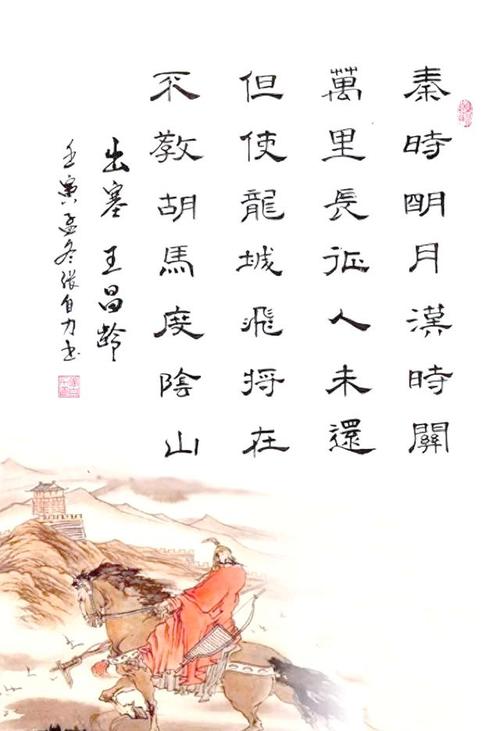 秦時明月漢時關
萬里長征人未還
但使龍城飛将在
不教胡馬度陰山
出塞 王昌龄
壬寅孟冬张自力书